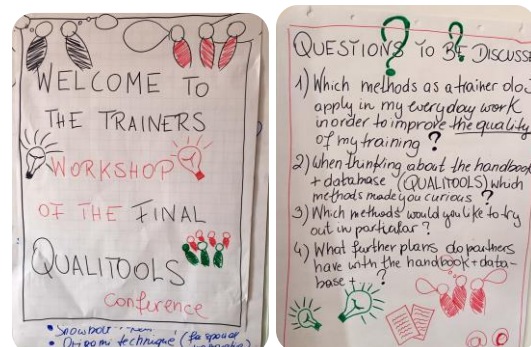 WELCOME TO
THE TRAINERS
WORKSHOP
OF THE FINAL
QUALITOOLS
Conference
• Snowball
• Origami technique (
QUESTIONS TO BE DISCUSSE
1) Which methods as a trainer do I
apply in my everyday work
in order to improve the quality
of my training ?
2) When thinking about the handbook
+ database (QUALITOOLS) which
methods made you curious ?
3) Which methods would you like to try
out in particular ?
4) What further plans do partners
have with the handbook + data-
base + ... ?